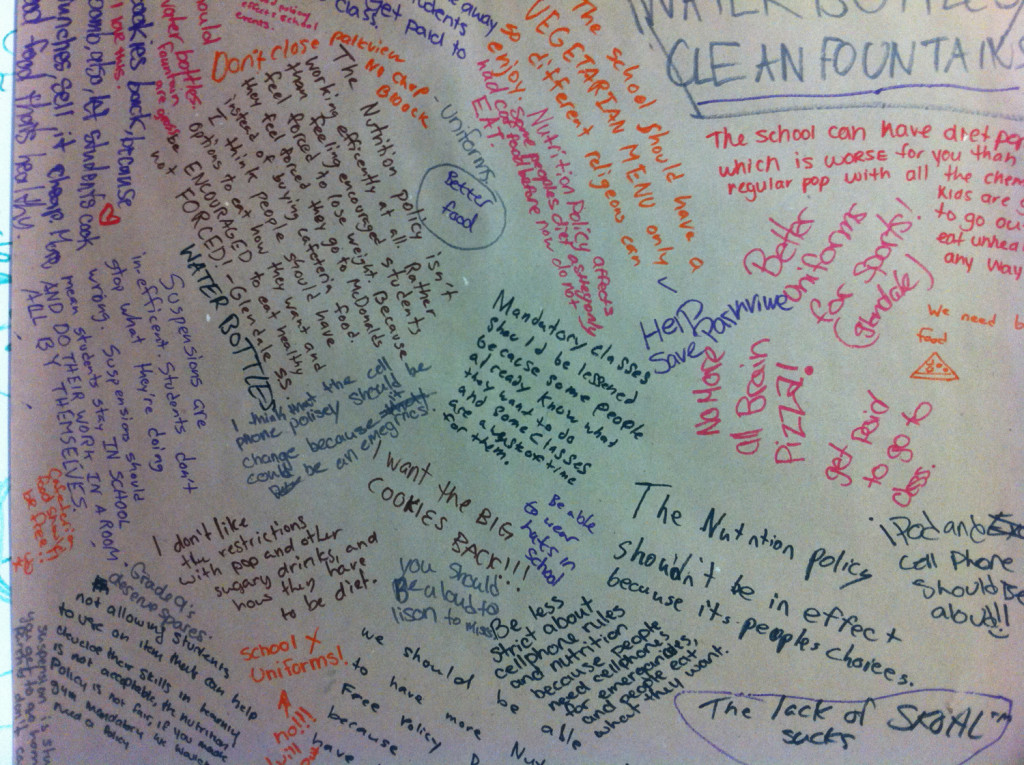 CLEAN FOUNTAINS
The school can have diet
which is WORSE for you than
regular pop with all the
kids are
to go
eat
any way
The school should have a
VEGETARIAN MENU only
so different religeous can
enjoy.
Nutrition Policy affects
some peoples diet
EAT.
get paid to
class.
Don't close parkview
No chop
Block
- uniforms
Better
food
The Nutrition policy isn't
working efficently at all. Rather
than feeling encouraged students
feel forced to lose weight. Because
they
instead of buying cafeteria food.
I think people should have
options to eat how they want and
ENCOURAGED to eat healthy
not FORCED! - Glendale SS
WATER BOTTLES
I love this.
cookies back, because
also, let students cook
lunches, sell it cheap.
food thats healthy.
Suspensions are
in-efficent. Students don't
stay what they're doing
wrong. Suspensions should
mean students stay IN SCHOOL
AND DO THEIR WORK IN A ROOM
ALL BY THEMSELVES.
I think that the cell
phone polisey should be
change because
could be an emegrincs!
Mandatory classes
should be lessoned
because some people
already know what
they want to do
and some classes
are a waste of time
for them.
Help
Save Parkview
Better
Uniforms
for sports!
(Glendale)
We need
food
No More
all Brain
Pizza!
get paid
to go to
class.
I want the BIG
COOKIES BACK!!!
Be able
to wear
hats in
school
The Nutrition policy
shouldn't be in effect
because it's peoples choices.
iPod and
cell Phone
should be
aloud!!
I don't like
the restrictions
with pop and other
sugary drinks, and
how they have
to be diet.
you should
Be aloud to
lison to
Be less
strict about
cellphone rules
and nutrition
because people
need cellphones
for emergancies,
and people eat
what they want.
food should
be free!!
Grade 9's
deserve spares.
not allowing students
to use an item that can help
develope their skills in
is not acceptable, the nutrition
Policy is not fair, if you made
gym mandatory we wouldn't
need a policy
suspension is
School X
Uniforms!
no!!!
we should be able
to have more
Free
because
have
The lack of SKOAL™
sucks